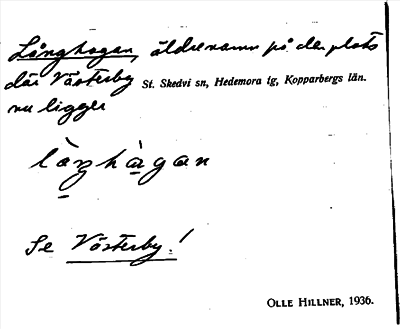 Långhagan, äldre namn på den plats
där Västerby St. Skedvi sn, Hedemora tg, Kopparbergs län.
nu ligger
Se Västerby!
OLLE HILLNER, 1936.